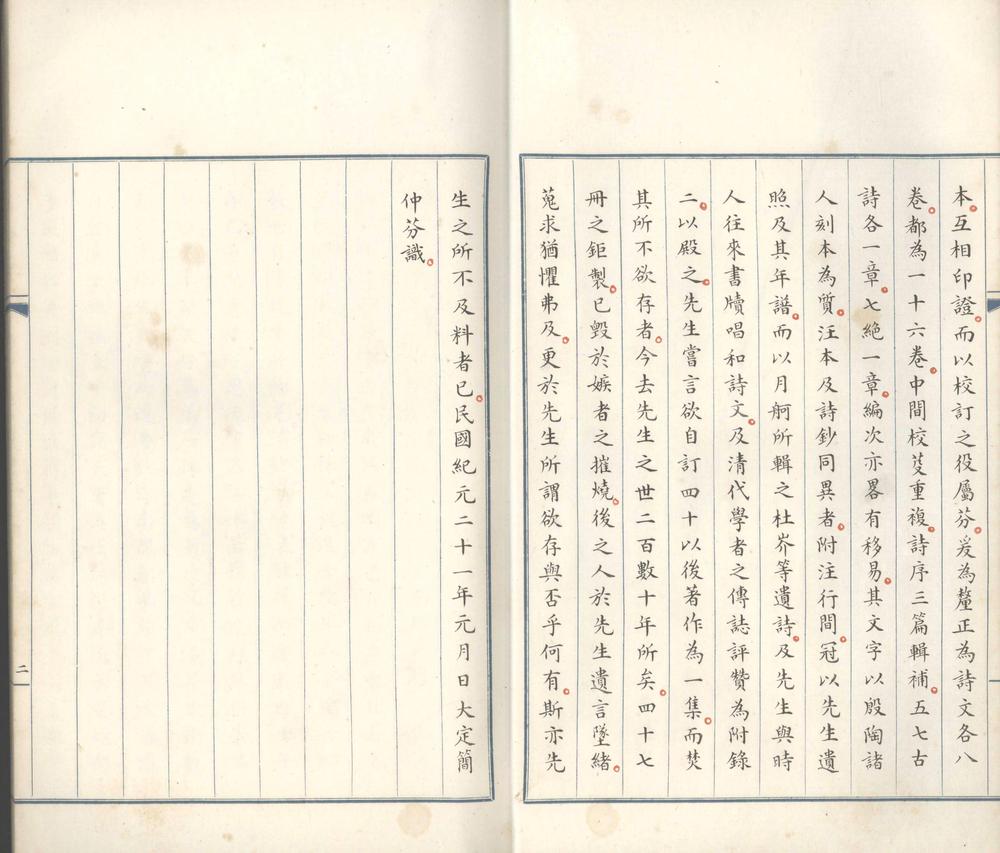 本互相印證而以校訂之役屬芬爰為釐正為詩文各八
卷都為一十六卷中間校芟重複詩序三篇輯補五七古
詩各一章七絕一章編次亦畧有移易其文字以殷陶諸
人刻本為質汪本及詩鈔同異者附注行間冠以先生遺
照及其年譜而以月舸所輯之杜芥等遺詩及先生與時
人往來書牘唱和詩文及清代學者之傳誌評贊為附錄
二以殿之先生嘗言欲自訂四十以後著作為一集而焚
其所不欲存者今去先生之世二百數十年所矣四十七
冊之鉅製已毀於嫉者之摧燒後之人於先生遺言墜緒
蒐求猶懼弗及更於先生所謂欲存與否乎何有斯亦先
生之所不及料者已民國紀元二十一年元月日大定簡
仲芬識
二